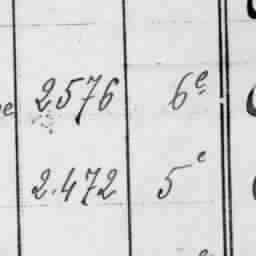 2576 6e
2.472 5e